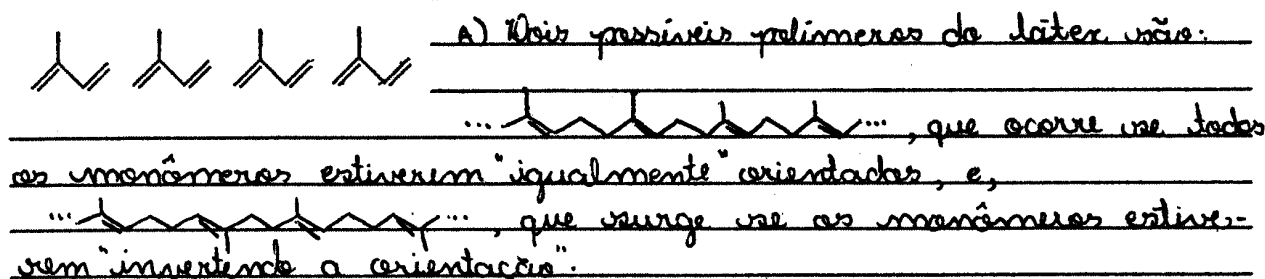 A) Dois possíveis polímeros do látex são:
..., que ocorre se todos
os monômeros estiverem "igualmente" orientados, e,
..., que surge se os monômeros estive-
rem "invertendo a orientação".